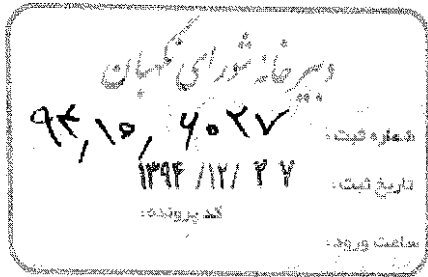 دبیرخانه شورای نگهبان
شماره ثبت: ۹۴/۱۰/۶۰۲۷
تاریخ ثبت: ۱۳۹۴/۱۲/۲۷
کد پرونده:
ساعت ورود: